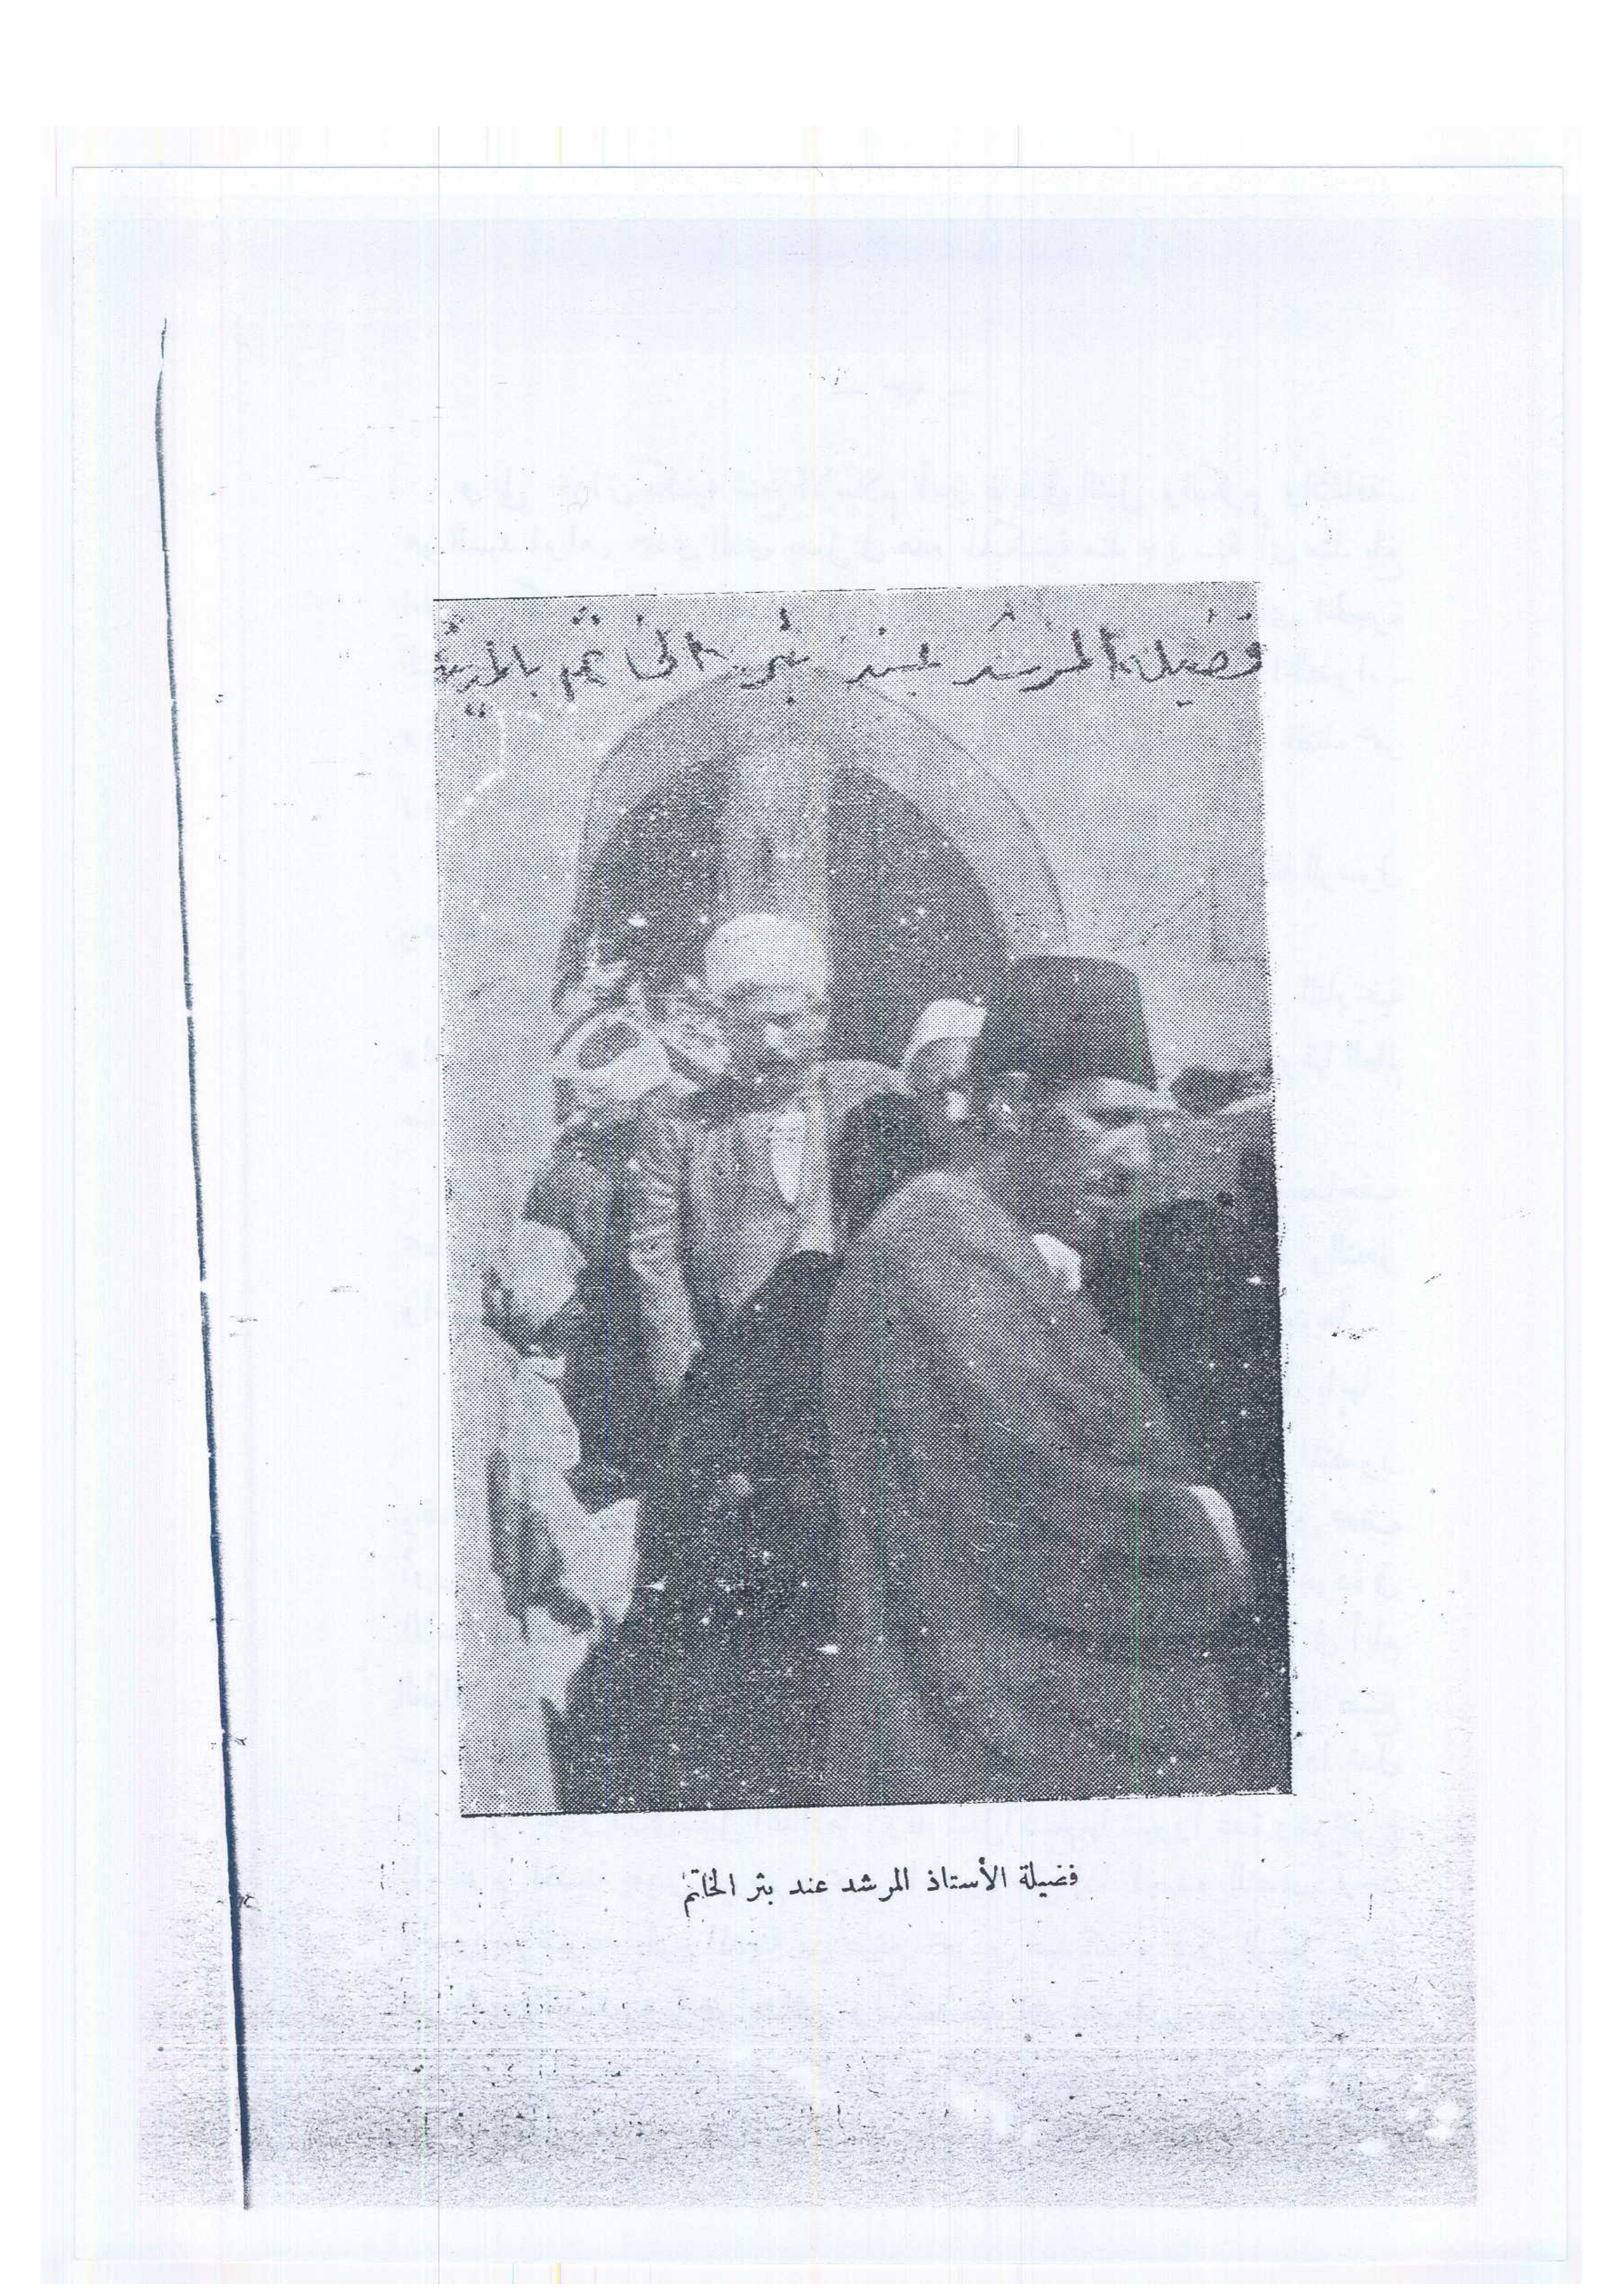 فضيلة المرشد عند بئر الخاتم بالمدينة
فضيلة الأستاذ المرشد عند بئر الخاتم